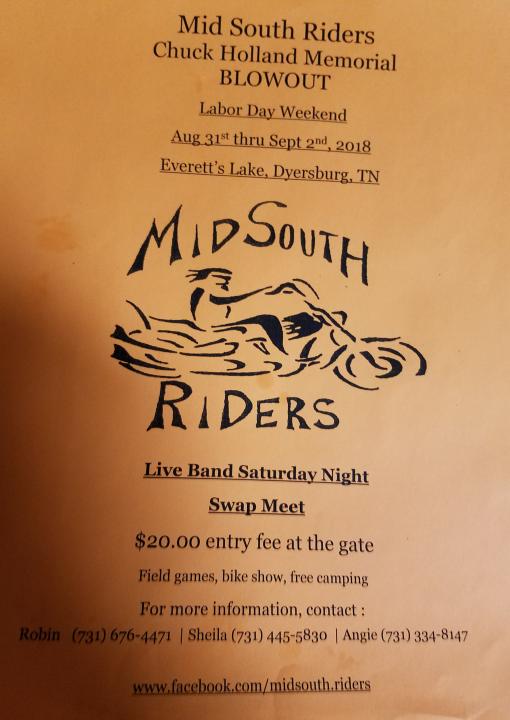 Mid South Riders
Chuck Holland Memorial
BLOWOUT
Labor Day Weekend
Aug 31st thru Sept 2nd, 2018
Everett's Lake, Dyersburg, TN
MID SOUTH
RIDERS
Live Band Saturday Night
Swap Meet
$20.00 entry fee at the gate
Field games, bike show, free camping
For more information, contact :
Robin (731) 676-4471 | Sheila (731) 445-5830 | Angie (731) 334-8147
www.facebook.com/midsouth.riders